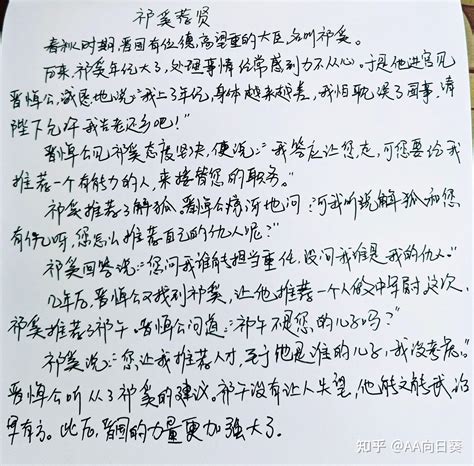 祁奚荐贤
春秋时期,晋国有位德高望重的大臣,名叫祁奚。
后来,祁奚年纪大了,处理事情经常感到力不从心。于是他进宫见
晋悼公,诚恳地说:"我上了年纪,身体越来越差,我怕耽误了国事,请
陛下允许我告老还乡吧!"
晋悼公见祁奚态度坚决,便说:"我答应让您走,可您要给我
推荐一个有能力的人,来接替您的职务。"
祁奚推荐了解狐。晋悼公惊讶地问:"可我听说解狐和您
有仇呀,您怎么推荐自己的仇人呢?"
祁奚回答说:"您问我谁能担当重任,没问我谁是我的仇人。"
几年后,晋悼公又找到祁奚,让他推荐一个人做中军尉,这次,
祁奚推荐了祁午。晋悼公问道:"祁午不是您的儿子吗?"
祁奚说:"您让我推荐人才,至于他是谁的儿子,我没考虑。"
晋悼公听从了祁奚的建议。祁午没有让人失望,他能文能武,治
军有方。此后,晋国的力量更加强大了.
知乎 @AA向日葵